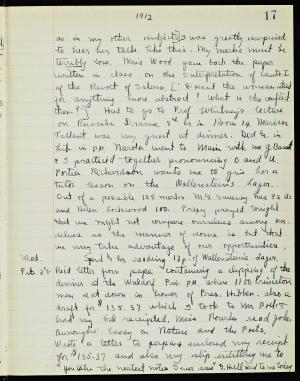 1912
17
as in my other subjects. I was greatly surprised
to hear her talk like this. My marks must be
terribly low. Miss Wood gave back the paper
written in class on the interpretation of Canto I
of the Revolt of Islam [
for anything more abstract? what is the conflict
then?] Had to go to Prof Whitney's lecture
on Russian Drama, in Room 14. Marion
Tallant was my guest at dinner. Did Ec. in
Lib in P.M. Marda went to Main with me
& I practiced together pronouncing O and U.
Portia Richardson wants me to give her a
tutor lesson on the Wallenstein's Lager.
Out of a possible 105 marks M. G. Sweeney has 92
and Helen Lockwood 100. Prexy prayed tonight
that we might not compare ourselves among our-
selves as the manner of some is but that
we may take advantage of our opportunities.
Wed.
Spent for reading 13 p of Wallenstein's Lager.
Feb. 28
Rec'd letter from papa containing a clipping of the
dinner at the Waldorf Fri. P.M. when 1100 Princeton
men sat down in honor of Pres. Hibben. also a
draft for $135.37 which I took to Mr. P
had my bill receipted. Miss Rourke read John
Burroughs' Essay on Nature and the Poets.
Wrote a letter to papa & enclosed my receipt
for $135.37 and also my slip entitling me to
"You take the neatest notes I ever saw" said to me today